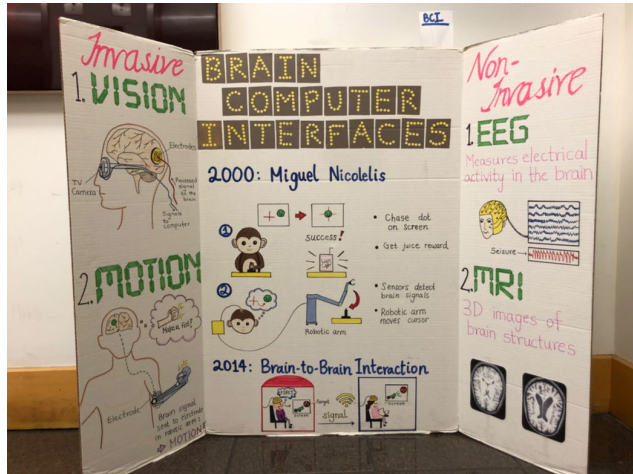 BCI
Invasive
1. VISION
Electrodes
TV
Camera
Processed
signal to
the brain
Signals
to
computer
2. MOTION
Make a fist!
Electrode
Brain signal
sent to
in robotic arm
→ MOTION
BRAIN
COMPUTER
INTERFACES
2000: Miguel Nicolelis
1
success!
• Chase dot
on screen
• Get juice reward
2
Robotic arm
• Sensors detect
brain signals
• Robotic arm
moves cursor
2014: Brain-to-Brain Interaction
signal
Non-
Invasive
1 EEG
Measures electrical
activity in the brain
Seizure
2. MRI
3D images of
brain structures